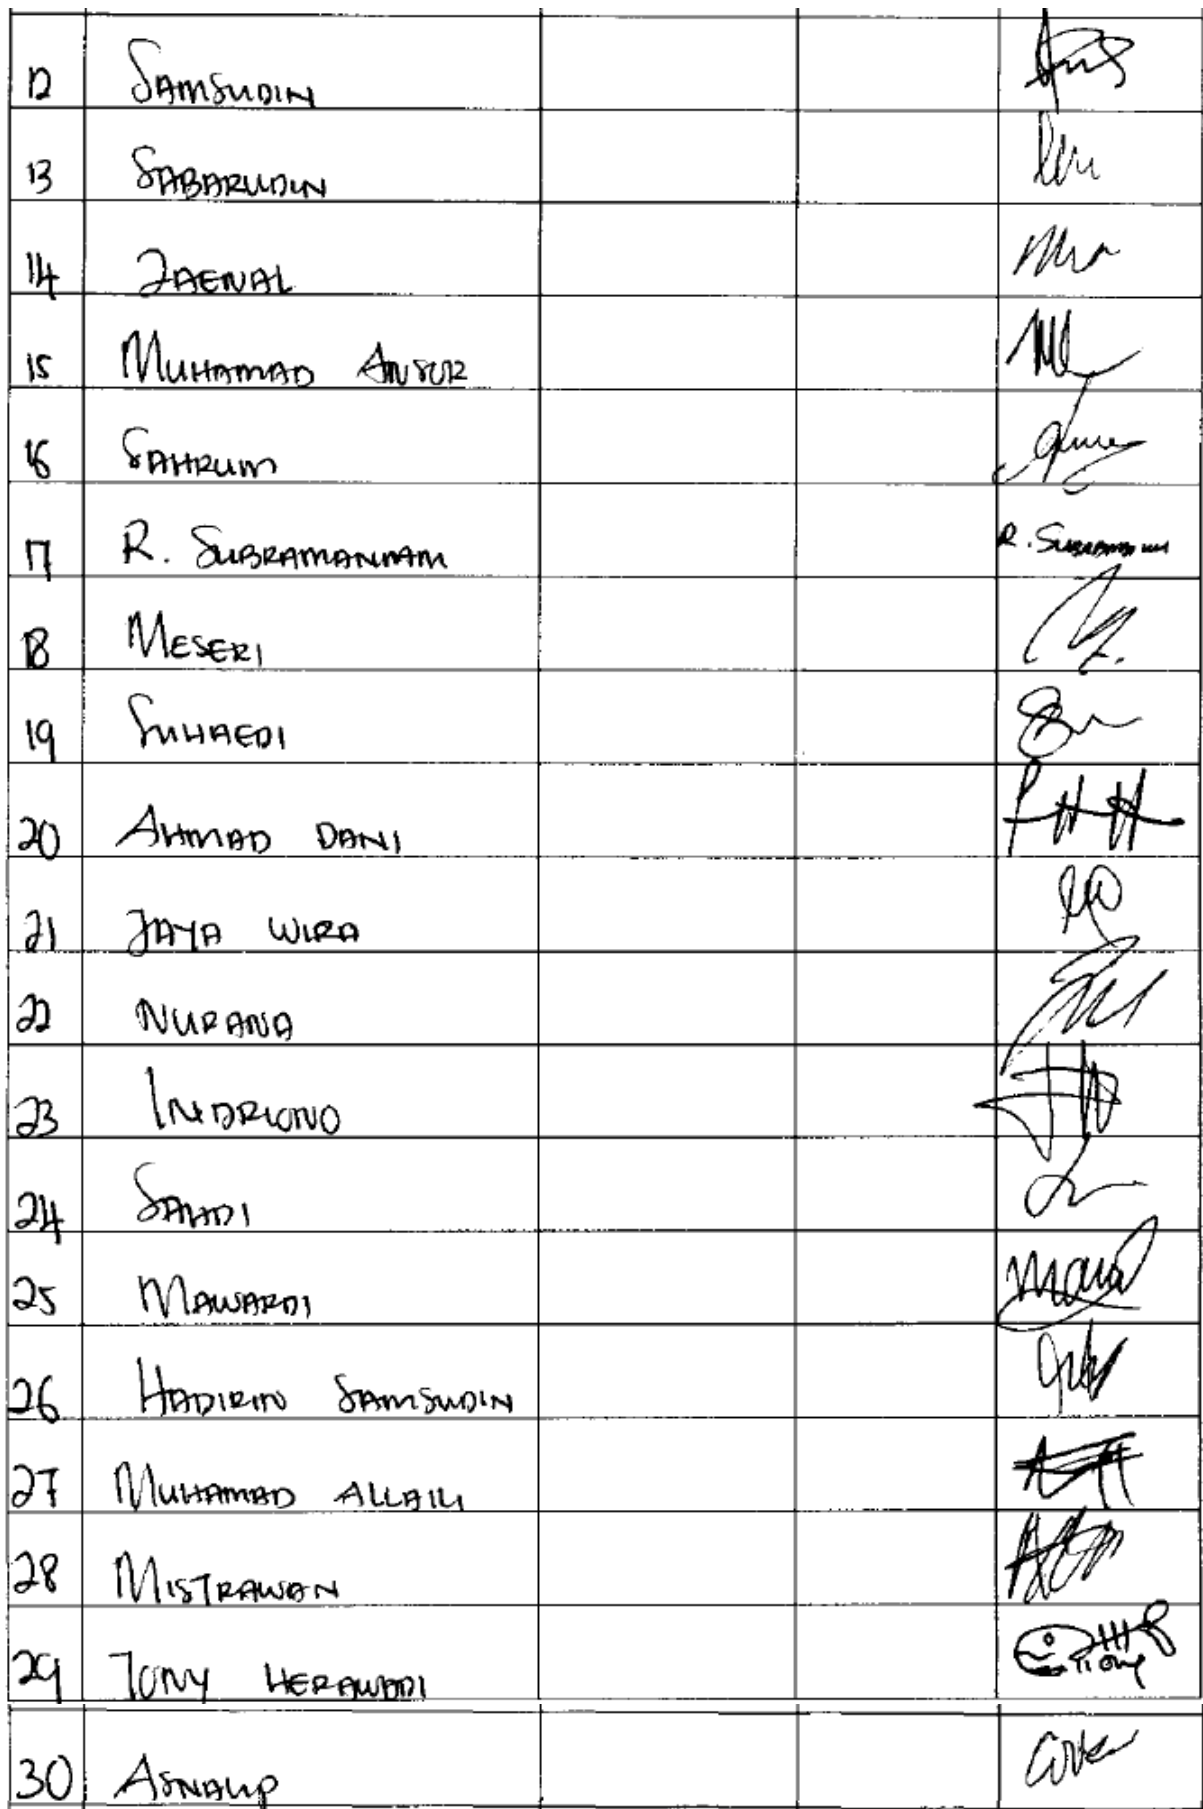 12 SAMSUDIN
13 SABARUDIN
14 ZAENAL
15 MUHAMAD ANSOR
16 SAHRUM
17 R. SUBRAMANIAM R. SUBRAMANIAM
18 MESERI
19 SUHAEDI
20 AHMAD DANI
21 JAYA WIRA
22 NURANA
23 INDRIONO
24 SAHDI
25 MAWARDI
26 HADIRIN SAMSUDIN
27 MUHAMAD ALLAILI
28 MISTRAWAN
29 TONY HERAWADI
30